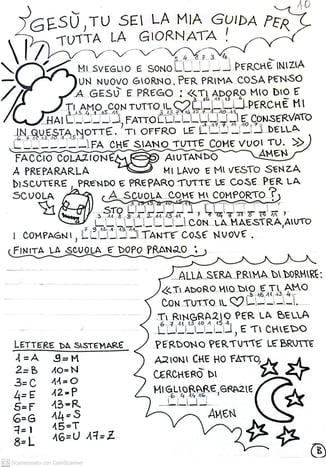 10
GESÙ, TU SEI LA MIA GUIDA PER
TUTTA LA GIORNATA!
MI SVEGLIO E SONO PERCHÈ INIZIA
UN NUOVO GIORNO. PER PRIMA COSA PENSO
A GESÙ E PREGO: «TI ADORO MIO DIO E
TI AMO CON TUTTO IL PERCHÈ MI
HAI, FATTO E CONSERVATO
IN QUESTA NOTTE. TI OFFRO LE DELLA
FA CHE SIANO TUTTE COME VUOI TU. »
AMEN
FACCIO COLAZIONE AIUTANDO
A PREPARARLA MI LAVO E MI VESTO SENZA
DISCUTERE, PRENDO E PREPARO TUTTE LE COSE PER LA
SCUOLA A SCUOLA COME MI COMPORTO?
STO
CON LA MAESTRA, AIUTO
I COMPAGNI, TANTE COSE NUOVE.
FINITA LA SCUOLA E DOPO PRANZO:
ALLA SERA PRIMA DI DORMIRE:
«TI ADORO MIO DIO E TI AMO
CON TUTTO IL
TI RINGRAZIO PER LA BELLA
E TI CHIEDO
PERDONO PER TUTTE LE BRUTTE
AZIONI CHE HO FATTO,
CERCHERÒ DI
MIGLIORARE, GRAZIE
AMEN
LETTERE DA SISTEMARE
1=A 9=M
2=B 10=N
3=C 11=O
4=E 12=P
5=F 13=R
6=G 14=S
7=I 15=T
8=L 16=U 17=Z
B
CS Scansionato con CamScanner